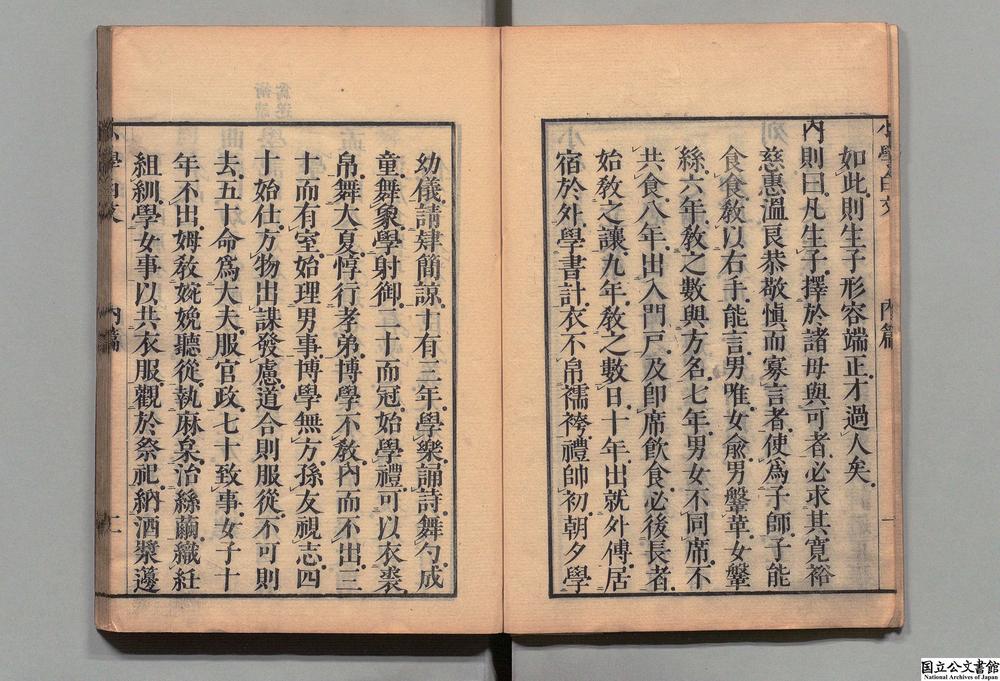 如此則生子形容端正才過人矣
內則曰凡生子擇於諸母與可者必求其寬裕
慈惠溫良恭敬愼而寡言者使爲子師子能
食食敎以右手能言男唯女兪男鞶革女鞶
絲六年敎之數與方名七年男女不同席不
共食八年出入門戶及卽席飮食必後長者
始敎之讓九年敎之數日十年出就外傅居
宿於外學書計衣不帛襦袴禮帥初朝夕學
幼儀請肄簡諒十有三年學樂誦詩舞勺成
童舞象學射御二十而冠始學禮可以衣裘
帛舞大夏惇行孝弟博學不敎內而不出三
十而有室始理男事博學無方孫友視志四
十始仕方物出謀發慮道合則服從不可則
去五十命爲大夫服官政七十致事女子十
年不出姆敎婉娩聽從執麻枲治絲繭織紝
組紃學女事以共衣服觀於祭祀納酒漿籩
小學白文
內篇
二
国立公文書館
National Archives of Japan